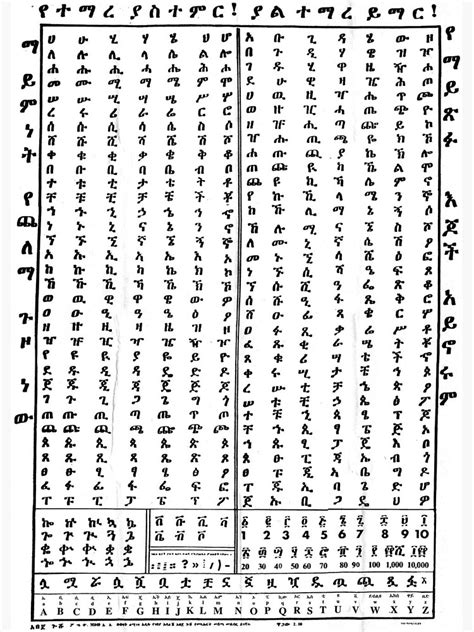 የተማረ ያስተምር! ያልተማረ ይማር!
ማይምነት የጨለማ ጉዞ ነው
ሀ ሁ ሂ ሃ ሄ ህ ሆ
ለ ሉ ሊ ላ ሌ ል ሎ
ሐ ሑ ሒ ሓ ሔ ሕ ሖ
መ ሙ ሚ ማ ሜ ም ሞ
ሠ ሡ ሢ ሣ ሤ ሥ ሦ
ረ ሩ ሪ ራ ሬ ር ሮ
ሰ ሱ ሲ ሳ ሴ ስ ሶ
ሸ ሹ ሺ ሻ ሼ ሽ ሾ
ቀ ቁ ቂ ቃ ቄ ቅ ቆ
በ ቡ ቢ ባ ቤ ብ ቦ
ተ ቱ ቲ ታ ቴ ት ቶ
ቸ ቹ ቺ ቻ ቼ ች ቾ
ኀ ኁ ኂ ኃ ኄ ኅ ኆ
ነ ኑ ኒ ና ኔ ን ኖ
ኘ ኙ ኚ ኛ ኜ ኝ ኞ
አ ኡ ኢ ኣ ኤ እ ኦ
ከ ኩ ኪ ካ ኬ ክ ኮ
ኸ ኹ ኺ ኻ ኼ ኽ ኾ
ወ ዉ ዊ ዋ ዌ ው ዎ
ዐ ዑ ዒ ዓ ዔ ዕ ዖ
ዘ ዙ ዚ ዛ ዜ ዝ ዞ
ዠ ዡ ዢ ዣ ዤ ዥ ዦ
የ ዩ ዪ ያ ዬ ይ ዮ
ደ ዱ ዲ ዳ ዴ ድ ዶ
ጀ ጁ ጂ ጃ ጄ ጅ ጆ
ገ ጉ ጊ ጋ ጌ ግ ጎ
ጠ ጡ ጢ ጣ ጤ ጥ ጦ
ጨ ጩ ጪ ጫ ጬ ጭ ጮ
ጰ ጱ ጲ ጳ ጴ ጵ ጶ
ጸ ጹ ጺ ጻ ጼ ጽ ጾ
ፀ ፁ ፂ ፃ ፄ ፅ ፆ
ፈ ፉ ፊ ፋ ፌ ፍ ፎ
ፐ ፑ ፒ ፓ ፔ ፕ ፖ
አ ቡ ጊ ዳ ሄ ው ዞ
በ ጉ ዲ ሃ ዌ ዝ ዦ
ገ ዱ ሂ ዋ ዜ ዥ ሖ
ደ ሁ ዊ ዛ ዤ ሕ ጦ
ሀ ዉ ዚ ዣ ሔ ጥ ጮ
ወ ዙ ዢ ሓ ጤ ጭ ዮ
ዘ ዡ ሒ ጣ ጬ ይ ኮ
ዠ ሑ ጢ ጫ ዬ ክ ኾ
ሐ ጡ ጪ ያ ኬ ኽ ሎ
ጠ ጩ ዪ ካ ኼ ል ሞ
ጨ ዩ ኪ ኻ ሌ ም ኖ
የ ኩ ኺ ላ ሜ ን ኞ
ከ ኹ ሊ ማ ኔ ኝ ሶ
ኸ ሉ ሚ ና ኜ ስ ሾ
ለ ሙ ኒ ኛ ሴ ሽ ዖ
መ ኑ ኚ ሳ ሼ ዕ ፎ
ነ ኙ ሲ ሻ ዔ ፍ ጾ
ኘ ሱ ሺ ዓ ፌ ጽ ቆ
ሰ ሹ ዒ ፋ ጼ ቅ ሮ
ሸ ዑ ፊ ጻ ቄ ር ሦ
ዐ ፉ ጺ ቃ ሬ ሥ ቶ
ፈ ጹ ቂ ራ ሤ ት ቾ
ጸ ቁ ሪ ሣ ቴ ች ኆ
ቀ ሩ ሢ ታ ቼ ኅ ጶ
ረ ሡ ቲ ቻ ኄ ጵ ፆ
ሠ ቱ ቺ ኃ ጴ ፅ ፖ
ተ ቹ ኂ ጳ ፄ ፕ ጆ
ቸ ኁ ጲ ፃ ፔ ጅ ኦ
ኀ ጱ ፂ ፓ ጄ እ ቦ
ጰ ፁ ፒ ጃ ኤ ብ ጎ
ፀ ፑ ጂ ኣ ቤ ግ ዶ
ፐ ጁ ኢ ባ ጌ ድ ሆ
ጀ ኡ ቢ ጋ ዴ ህ ዎ
የማይጽፉ እጆች አይኖሩም
ኰ ኵ ኲ ኳ ኴ
ጐ ጕ ጒ ጓ ጔ
ቈ ቍ ቊ ቋ ቌ
ኈ ኍ ኊ ኋ ኌ
ቨ ቩ ቪ ቫ
ቬ ቭ ቮ
፩ ፪ ፫ ፬ ፭ ፮ ፯ ፰ ፱ ፲
1 2 3 4 5 6 7 8 9 10
፳ ፴ ፵ ፶ ፷ ፸ ፹ ፺ ፻ ፲፻ ፼
20 30 40 50 60 70 80 90 100 1,000 10,000
A B C D E F G H I J K L M N O P Q R S T U V W X Y Z